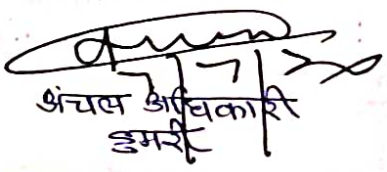 7/7/20
अंचल अधिकारी
डुमरी